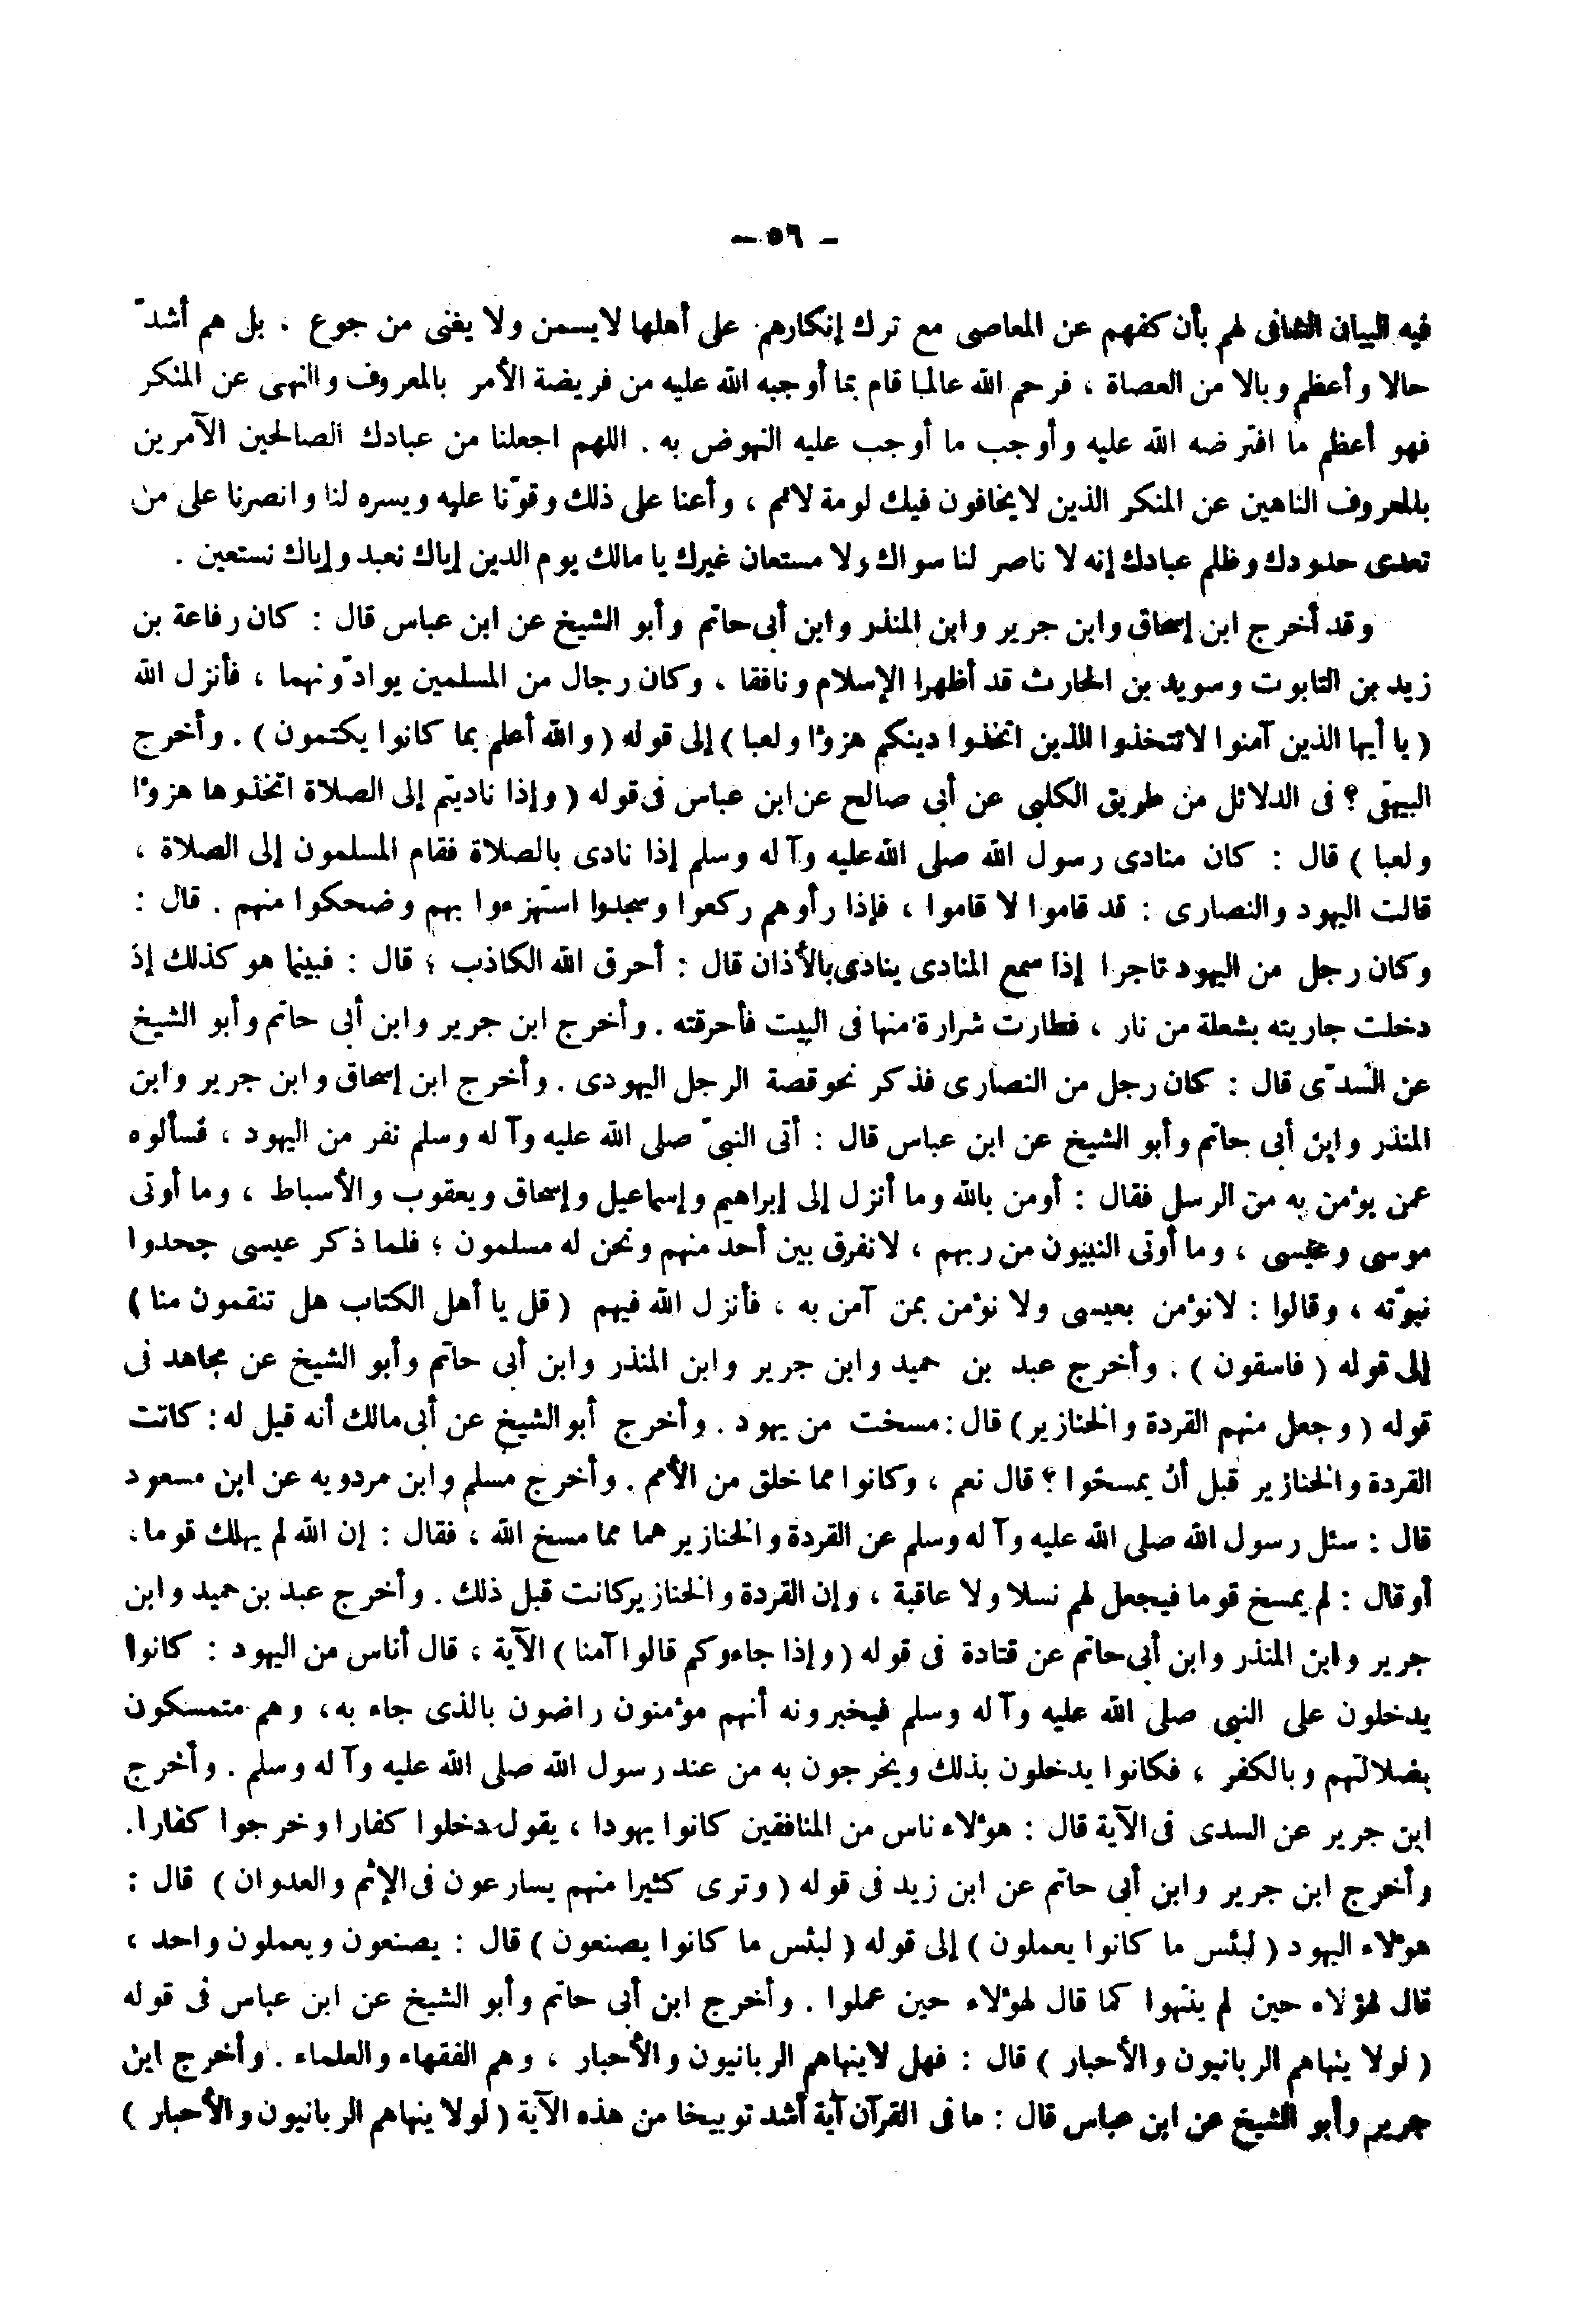 - ٥٦ -
فيه البيان الشافى لهم بأن كفهم عن المعاصى مع ترك إنكارهم على أهلها لايسمن ولا يغنى من جوع ، بل هم أشدّ
حالا وأعظم وبالا من العصاة ، فرحم الله عالما قام بما أوجبه الله عليه من فريضة الأمر بالمعروف والنهى عن المنكر
فهو أعظم ما افترضه الله عليه وأوجب ما أوجب عليه النهوض به . اللهم اجعلنا من عبادك الصالحين الآمرين
بالمعروف الناهين عن المنكر الذين لايخافون فيك لومة لائم ، وأعنا على ذلك وقوّنا عليه ويسره لنا وانصرنا على من
تعدى حدودك وظلم عبادك إنه لا ناصر لنا سواك ولا مستعان غيرك يا مالك يوم الدين إياك نعبد وإياك نستعين .
وقد أخرج ابن إسحاق وابن جرير وابن المنذر وابن أبى حاتم وأبو الشيخ عن ابن عباس قال : كان رفاعة بن
زيد بن التابوت وسويد بن الحارث قد أظهرا الإسلام ونافقا ، وكان رجال من المسلمين يوادّونهما ، فأنزل الله
( يا أيها الذين آمنوا لاتتخذوا الذين اتخذوا دينكم هزوًا ولعبا ) إلى قوله ( والله أعلم بما كانوا يكتمون ) . وأخرج
البيهقى ؟ فى الدلائل من طريق الكلبى عن أبى صالح عن ابن عباس فى قوله ( وإذا ناديتم إلى الصلاة اتخذوها هزوًا
ولعبا ) قال : كان منادى رسول الله صلى الله عليه وآله وسلم إذا نادى بالصلاة فقام المسلمون إلى الصلاة ،
قالت اليهود والنصارى : قد قاموا لا قاموا ، فإذا رأوهم ركعوا وسجدوا استهزءوا بهم وضحكوا منهم . قال :
وكان رجل من اليهود تاجرا إذا سمع المنادى ينادى بالأذان قال : أحرق الله الكاذب ؛ قال : فبينما هو كذلك إذ
دخلت جاريته بشعلة من نار ، فطارت شرارة منها فى البيت فأحرقته . وأخرج ابن جرير وابن أبى حاتم وأبو الشيخ
عن السدّى قال : كان رجل من النصارى فذكر نحو قصة الرجل اليهودى . وأخرج ابن إسحاق وابن جرير وابن
المنذر وابن أبى حاتم وأبو الشيخ عن ابن عباس قال : أتى النبىّ صلى الله عليه وآله وسلم نفر من اليهود ، فسألوه
عمن يؤمن به من الرسل فقال : أومن بالله وما أنزل إلى إبراهيم وإسماعيل وإسحاق ويعقوب والأسباط ، وما أوتى
موسى وعيسى ، وما أوتى النبيون من ربهم ، لانفرق بين أحد منهم ونحن له مسلمون ؛ فلما ذكر عيسى جحدوا
نبوّته ، وقالوا : لانؤمن بعيسى ولا نؤمن بمن آمن به ، فأنزل الله فيهم ( قل يا أهل الكتاب هل تنقمون منا )
إلى قوله ( فاسقون ) . وأخرج عبد بن حميد وابن جرير وابن المنذر وابن أبى حاتم وأبو الشيخ عن مجاهد فى
قوله ( وجعل منهم القردة والخنازير ) قال : مسخت من يهود . وأخرج أبو الشيخ عن أبى مالك أنه قيل له : كانت
القردة والخنازير قبل أن يمسخوا ؟ قال نعم ، وكانوا مما خلق من الأمم . وأخرج مسلم وابن مردويه عن ابن مسعود
قال : سئل رسول الله صلى الله عليه وآله وسلم عن القردة والخنازير هما مما مسخ الله ، فقال : إن الله لم يهلك قوما ،
أو قال : لم يمسخ قوما فيجعل لهم نسلا ولا عاقبة ، وإن القردة والخنازير كانت قبل ذلك . وأخرج عبد بن حميد وابن
جرير وابن المنذر وابن أبى حاتم عن قتادة فى قوله ( وإذا جاءوكم قالوا آمنا ) الآية ، قال أناس من اليهود : كانوا
يدخلون على النبى صلى الله عليه وآله وسلم فيخبرونه أنهم مؤمنون راضون بالذى جاء به ، وهم متمسكون
بضلالتهم وبالكفر ، فكانوا يدخلون بذلك ويخرجون به من عند رسول الله صلى الله عليه وآله وسلم . وأخرج
ابن جرير عن السدى فى الآية قال : هؤلاء ناس من المنافقين كانوا يهودا ، يقول دخلوا كفارا وخرجوا كفارا .
وأخرج ابن جرير وابن أبى حاتم عن ابن زيد فى قوله ( وترى كثيرا منهم يسارعون فى الإثم والعدوان ) قال :
هؤلاء اليهود ( لبئس ما كانوا يعملون ) إلى قوله ( لبئس ما كانوا يصنعون ) قال : يصنعون ويعملون واحد ،
قال لهؤلاء حين لم ينتهوا كما قال لهؤلاء حين عملوا . وأخرج ابن أبى حاتم وأبو الشيخ عن ابن عباس فى قوله
( لولا ينهاهم الربانيون والأحبار ) قال : فهل لاينهاهم الربانيون والأحبار ، وهم الفقهاء والعلماء . وأخرج ابن
جرير وأبو الشيخ عن ابن عباس قال : ما فى القرآن آية أشد توبيخا من هذه الآية ( لولا ينهاهم الربانيون والأحبار )